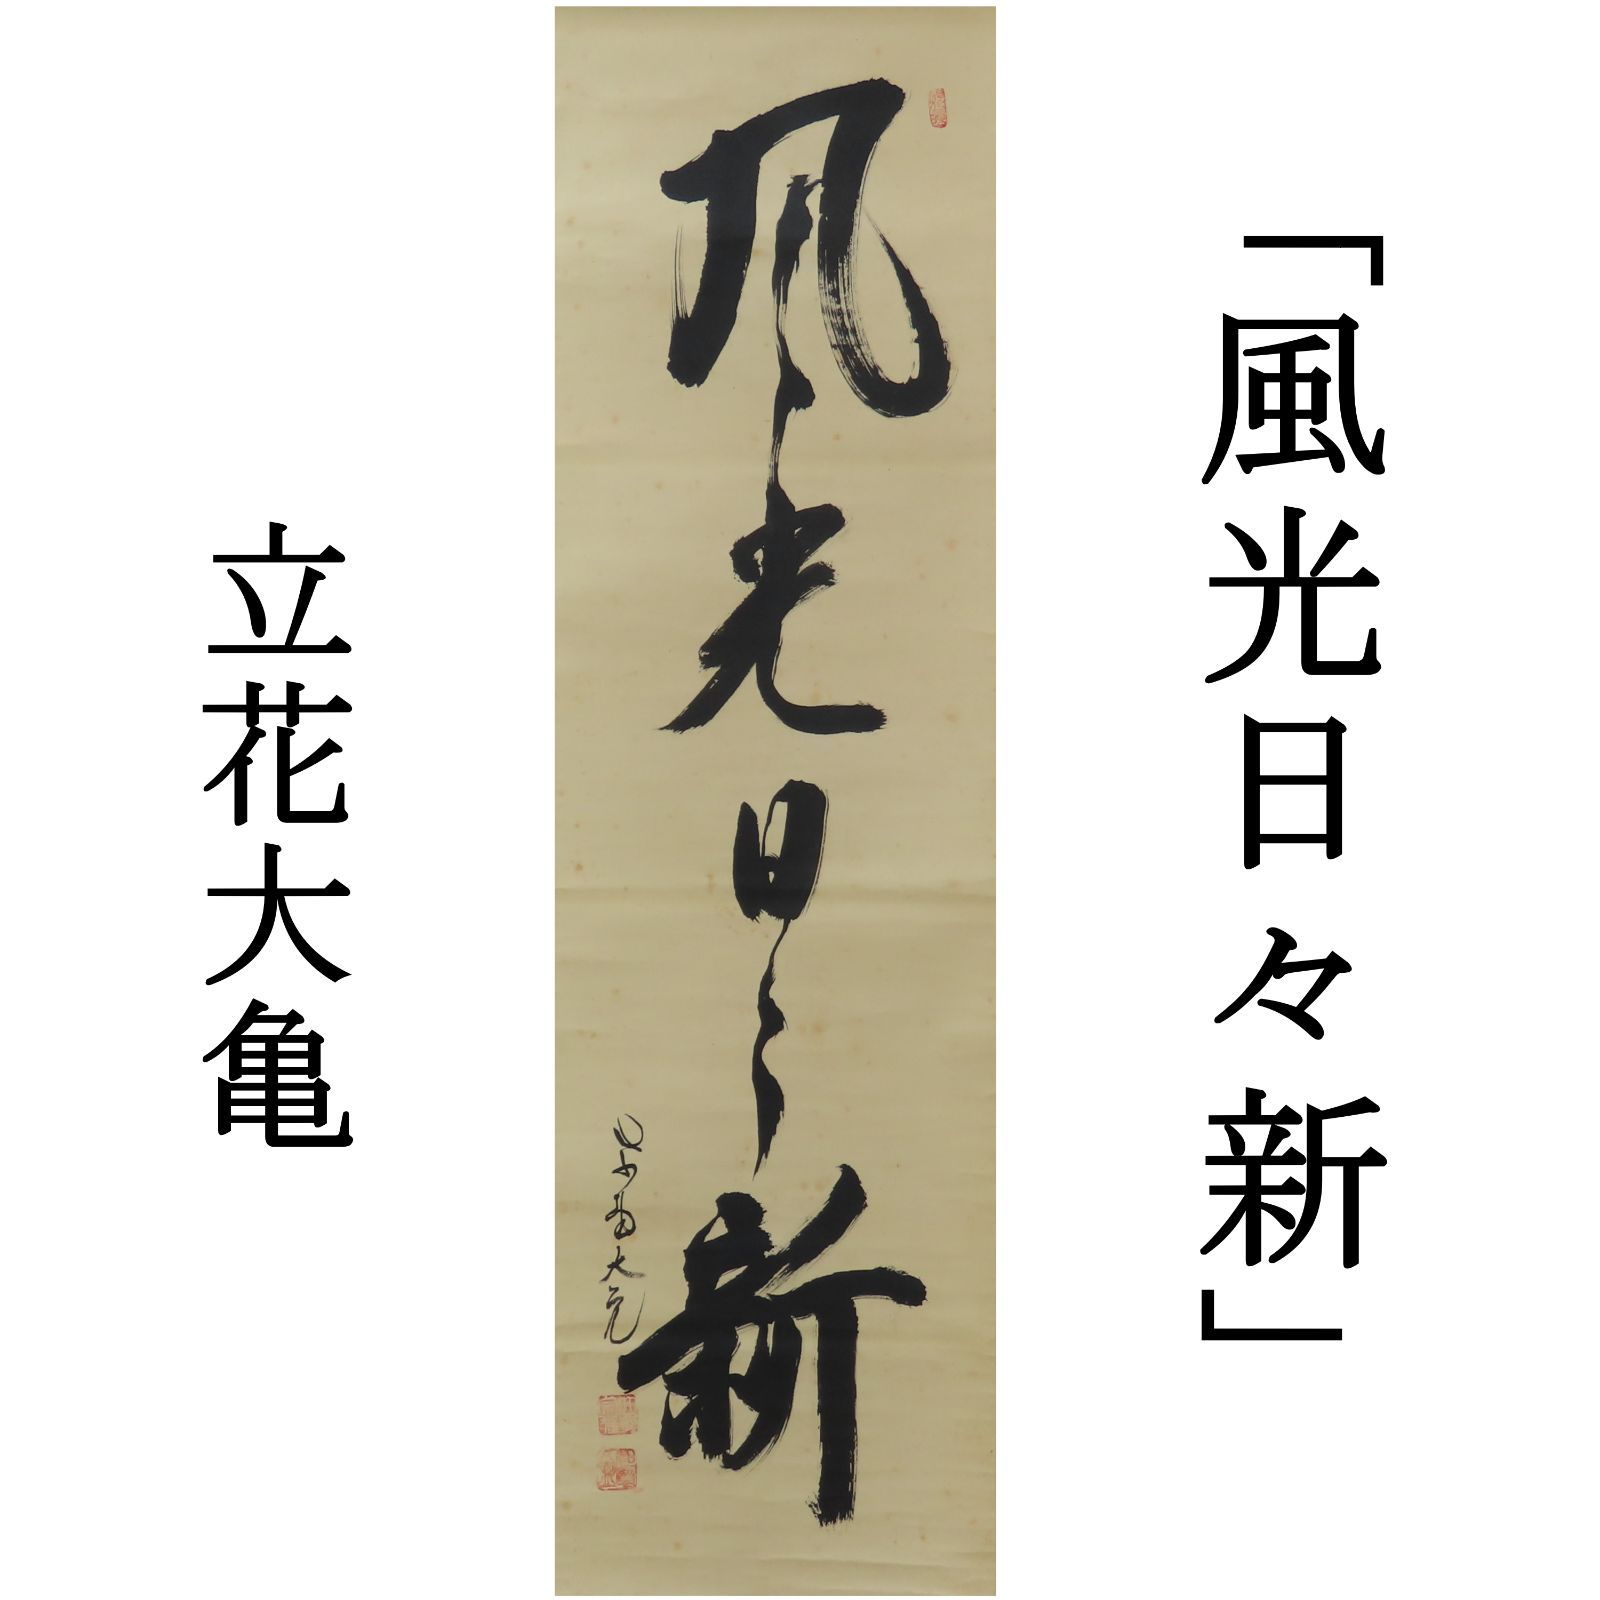 「風光日々新」
風光日々新
大亀
立花大亀